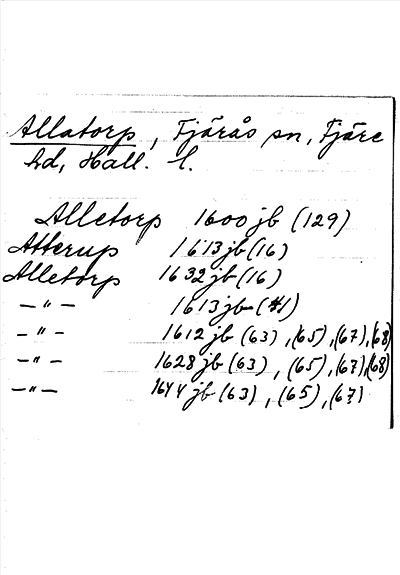 Allatorp, Fjärås sn, Fjäre
hd, Hall. l.
Alletorp 1600 jb (129)
Atterup 1613 jb (16)
Alletorp 1632 jb (16)
— " — 1613 jb (41)
— " — 1612 jb (63), (65), (67), (68)
— " — 1628 jb (63), (65), (67), (68)
— " — 1644 jb (63), (65), (67)